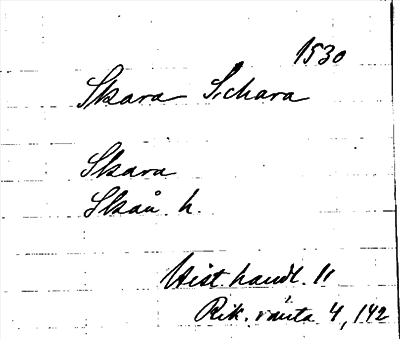 1530
Skara Schara
Skara
Skån. h.
Hist. handl. 11
Rik. ränta 4, 142